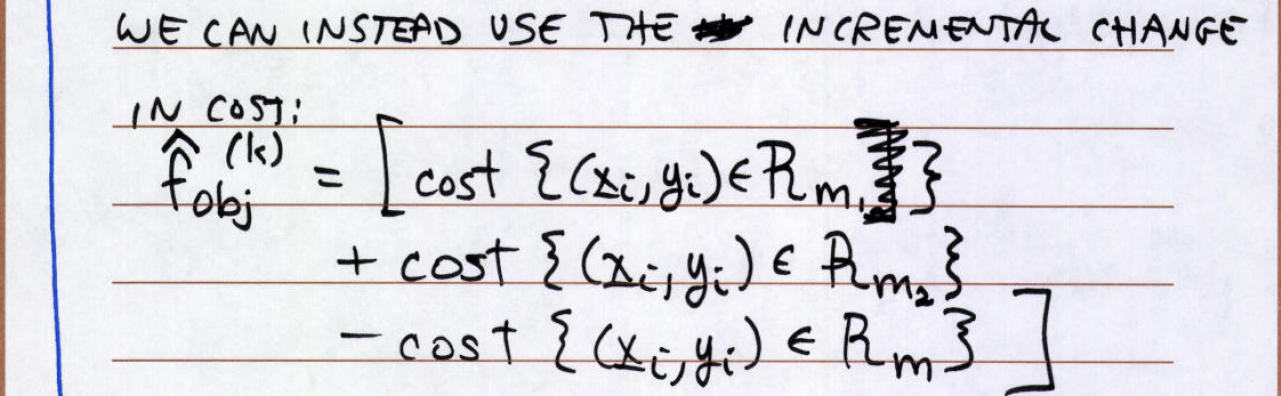 WE CAN INSTEAD USE THE INCREMENTAL CHANGE
IN COST:
f̂_obj^(k) = [ cost {(x_i, y_i) ∈ R_m₁}
+ cost {(x_i, y_i) ∈ R_m₂}
− cost {(x_i, y_i) ∈ R_m} ]